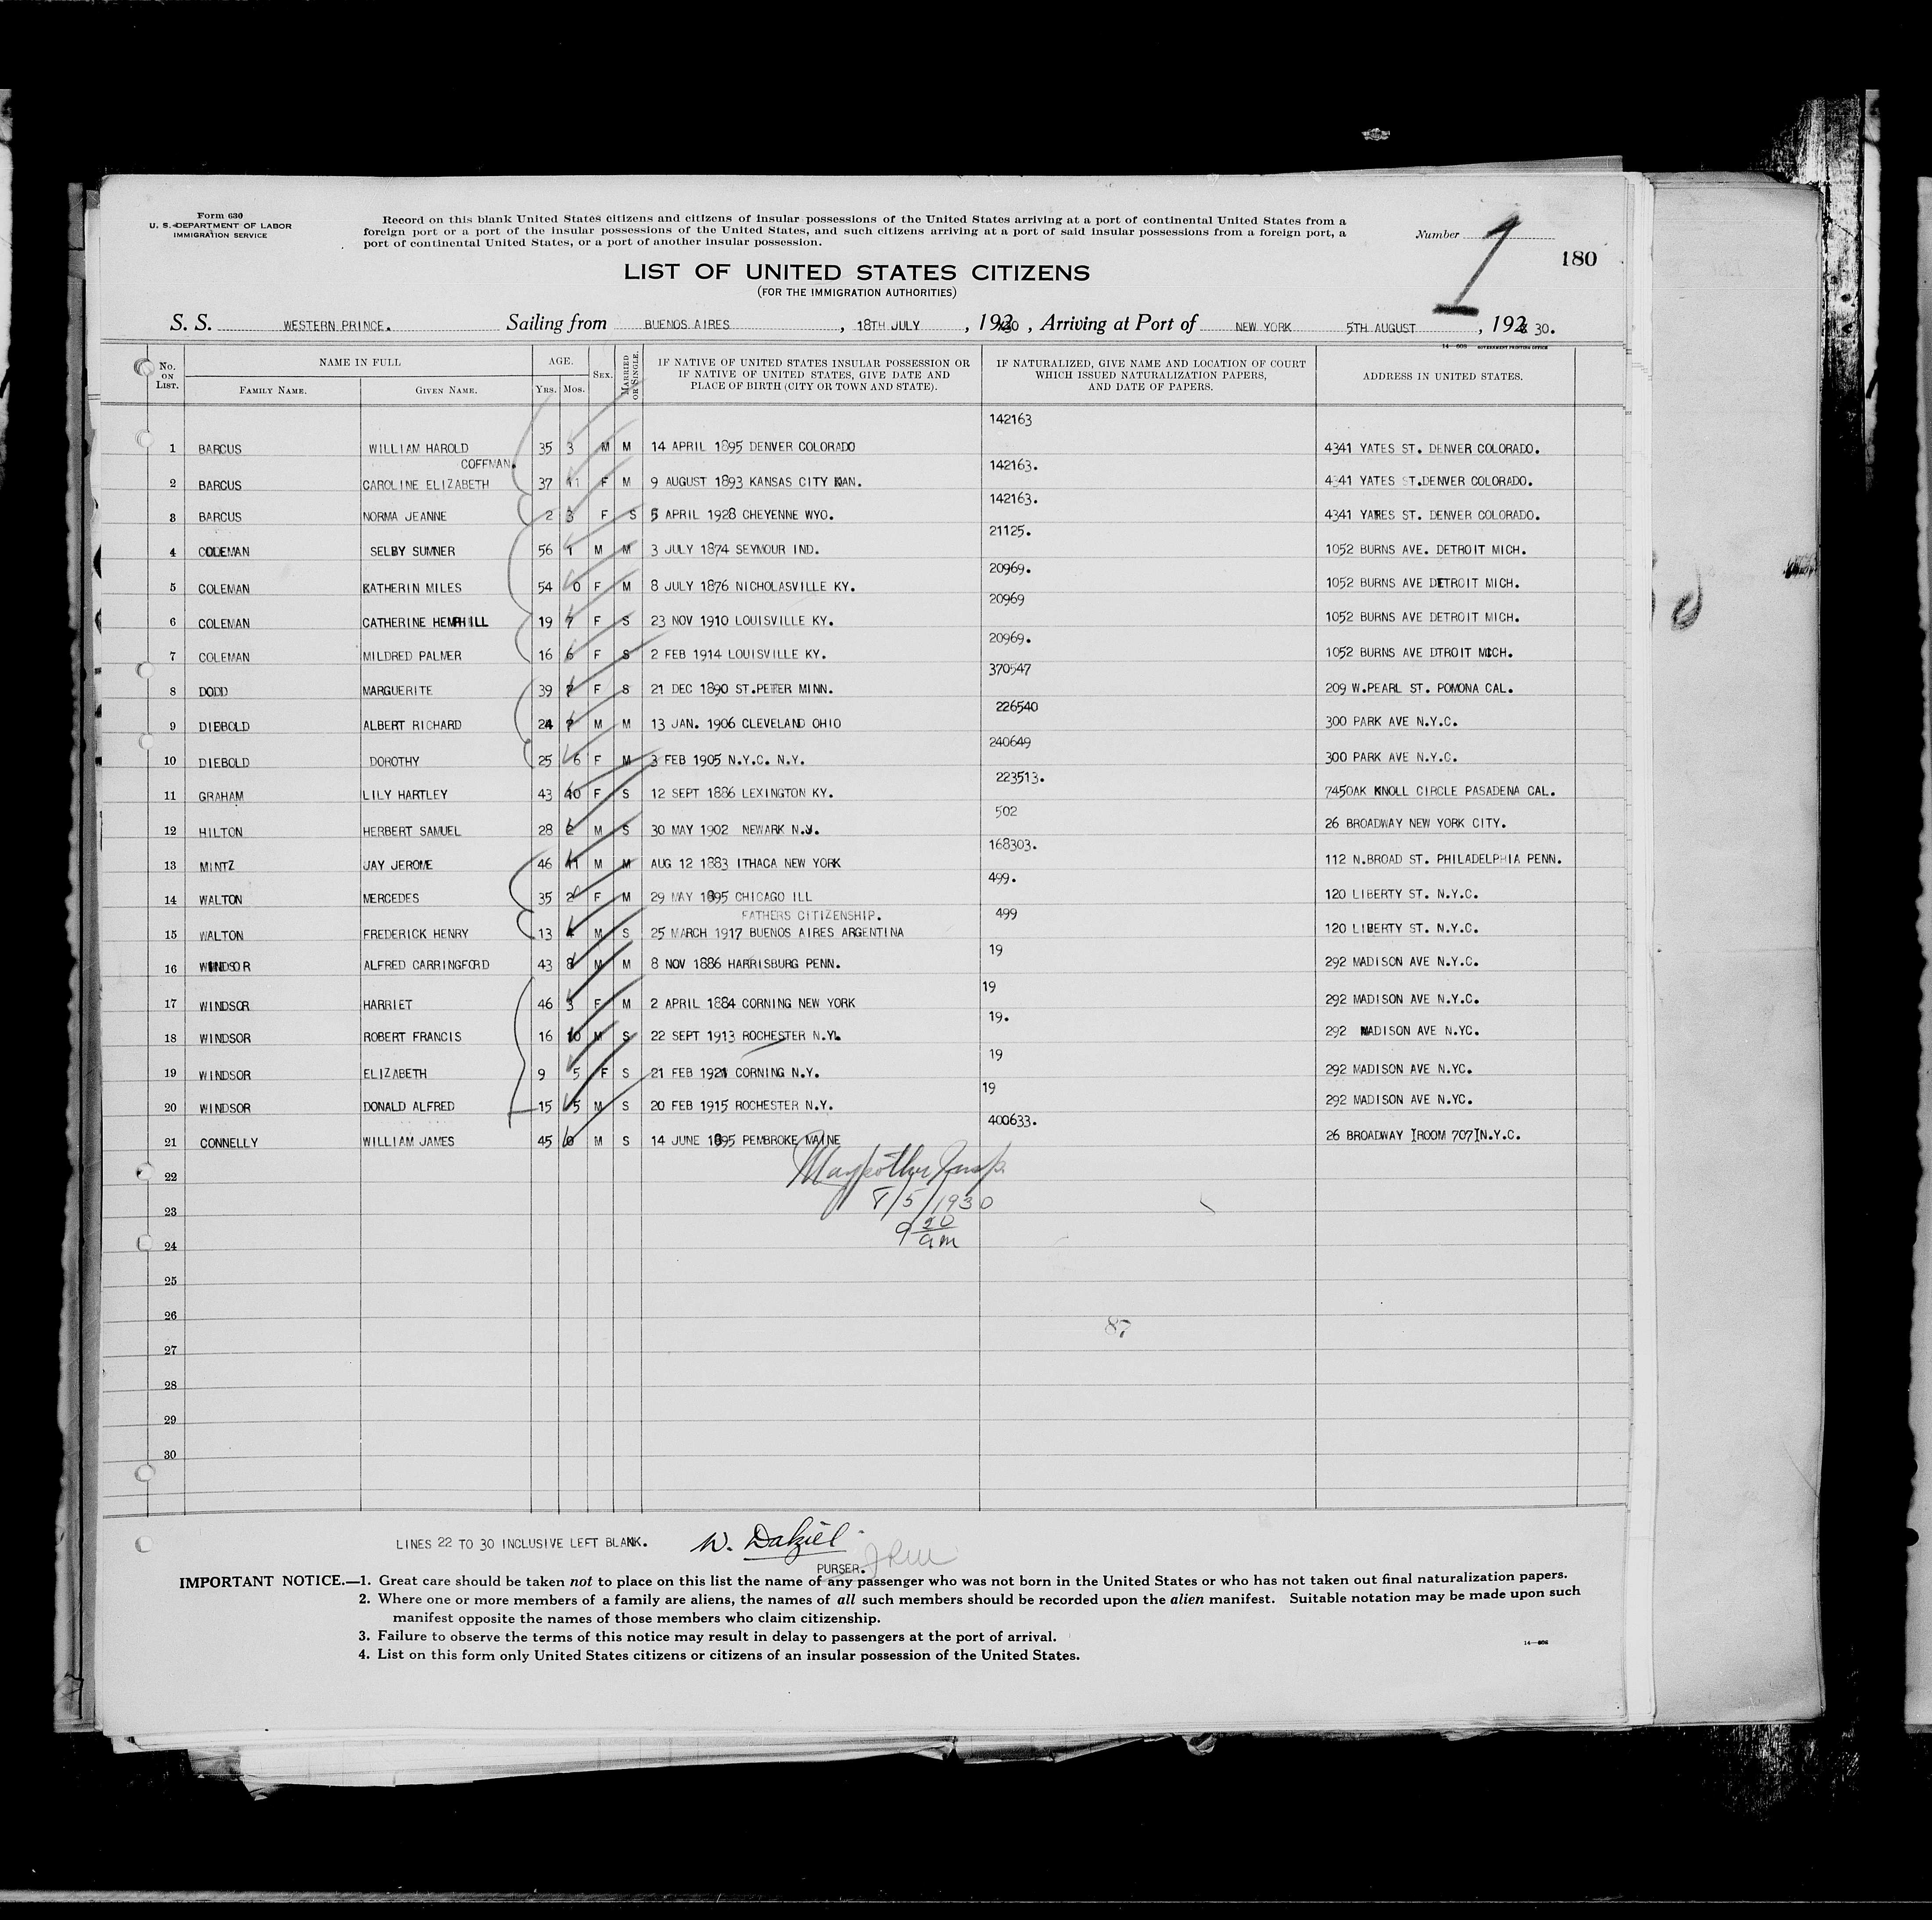 Form 630
U. S. DEPARTMENT OF LABOR
IMMIGRATION SERVICE
Record on this blank United States citizens and citizens of insular possessions of the United States arriving at a port of continental United States from a
foreign port or a port of the insular possessions of the United States, and such citizens arriving at a port of said insular possessions from a foreign port, a
port of continental United States, or a port of another insular possession.
Number 1
180
LIST OF UNITED STATES CITIZENS
(FOR THE IMMIGRATION AUTHORITIES)
S. S. WESTERN PRINCE. Sailing from BUENOS AIRES, 18TH JULY, 1930, Arriving at Port of NEW YORK 5TH AUGUST, 192 30.
14—608 GOVERNMENT PRINTING OFFICE
No. ON LIST. NAME IN FULL AGE. SEX. MARRIED OR SINGLE. IF NATIVE OF UNITED STATES INSULAR POSSESSION OR IF NATIVE OF UNITED STATES, GIVE DATE AND PLACE OF BIRTH (CITY OR TOWN AND STATE). IF NATURALIZED, GIVE NAME AND LOCATION OF COURT WHICH ISSUED NATURALIZATION PAPERS, AND DATE OF PAPERS. ADDRESS IN UNITED STATES.
FAMILY NAME. GIVEN NAME. YRS. MOS.
142163
1 BARCUS WILLIAM HAROLD 35 3 M M 14 APRIL 1895 DENVER COLORADO 4341 YATES ST. DENVER COLORADO.
COFFMAN. 142163.
2 BARCUS CAROLINE ELIZABETH 37 11 F M 9 AUGUST 1893 KANSAS CITY KAN. 4341 YATES ST.DENVER COLORADO.
142163.
3 BARCUS NORMA JEANNE 2 3 F S 5 APRIL 1928 CHEYENNE WYO. 4341 YATES ST. DENVER COLORADO.
21125.
4 COLEMAN SELBY SUMNER 56 1 M M 3 JULY 1874 SEYMOUR IND. 1052 BURNS AVE. DETROIT MICH.
20969.
5 COLEMAN KATHERIN MILES 54 0 F M 8 JULY 1876 NICHOLASVILLE KY. 1052 BURNS AVE DETROIT MICH.
20969
6 COLEMAN CATHERINE HEMPHILL 19 7 F S 23 NOV 1910 LOUISVILLE KY. 1052 BURNS AVE DETROIT MICH.
20969.
7 COLEMAN MILDRED PALMER 16 6 F S 2 FEB 1914 LOUISVILLE KY. 1052 BURNS AVE DTROIT MICH.
370547
8 DODD MARGUERITE 39 7 F S 21 DEC 1890 ST.PETER MINN. 209 W.PEARL ST. POMONA CAL.
226540
9 DIEBOLD ALBERT RICHARD 24 7 M M 13 JAN. 1906 CLEVELAND OHIO 300 PARK AVE N.Y.C.
240649
10 DIEBOLD DOROTHY 25 6 F M 3 FEB 1905 N.Y.C. N.Y. 300 PARK AVE N.Y.C.
223513.
11 GRAHAM LILY HARTLEY 43 10 F S 12 SEPT 1886 LEXINGTON KY. 745OAK KNOLL CIRCLE PASADENA CAL.
502
12 HILTON HERBERT SAMUEL 28 2 M S 30 MAY 1902 NEWARK N.J. 26 BROADWAY NEW YORK CITY.
168303.
13 MINTZ JAY JEROME 46 11 M M AUG 12 1883 ITHACA NEW YORK 112 N.BROAD ST. PHILADELPHIA PENN.
499.
14 WALTON MERCEDES 35 2 F M 29 MAY 1895 CHICAGO ILL 120 LIBERTY ST. N.Y.C.
FATHERS CITIZENSHIP. 499
15 WALTON FREDERICK HENRY 13 4 M S 25 MARCH 1917 BUENOS AIRES ARGENTINA 120 LIBERTY ST. N.Y.C.
19
16 WINDSOR ALFRED CARRINGFORD 43 8 M M 8 NOV 1886 HARRISBURG PENN. 292 MADISON AVE N.Y.C.
19
17 WINDSOR HARRIET 46 3 F M 2 APRIL 1884 CORNING NEW YORK 292 MADISON AVE N.Y.C.
19.
18 WINDSOR ROBERT FRANCIS 16 10 M S 22 SEPT 1913 ROCHESTER N.Y. 292 MADISON AVE N.YC.
19
19 WINDSOR ELIZABETH 9 5 F S 21 FEB 1921 CORNING N.Y. 292 MADISON AVE N.YC.
19
20 WINDSOR DONALD ALFRED 15 5 M S 20 FEB 1915 ROCHESTER N.Y. 292 MADISON AVE N.YC.
400633.
21 CONNELLY WILLIAM JAMES 45 0 M S 14 JUNE 1895 PEMBROKE MAINE 26 BROADWAY [ROOM 707]N.Y.C.
22
8/5/1930
23
9 20 am
24
25
26
87
27
28
29
30
LINES 22 TO 30 INCLUSIVE LEFT BLANK. W. Dalziel
PURSER.
IMPORTANT NOTICE.—1. Great care should be taken not to place on this list the name of any passenger who was not born in the United States or who has not taken out final naturalization papers.
2. Where one or more members of a family are aliens, the names of all such members should be recorded upon the alien manifest. Suitable notation may be made upon such
manifest opposite the names of those members who claim citizenship.
3. Failure to observe the terms of this notice may result in delay to passengers at the port of arrival.
4. List on this form only United States citizens or citizens of an insular possession of the United States.